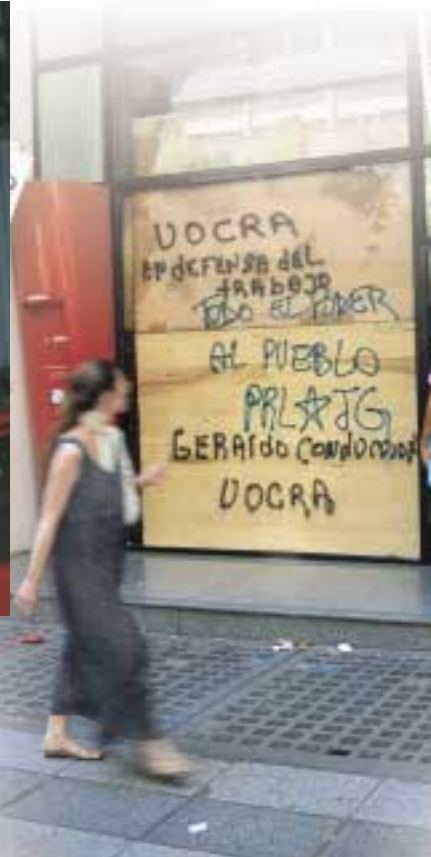 UOCRA
EN DEFENSA dEL
tRABAJO
TODO EL PODER
AL PUEBLO
PRL☆JG
GERARdO CONdUCCION
UOCRA